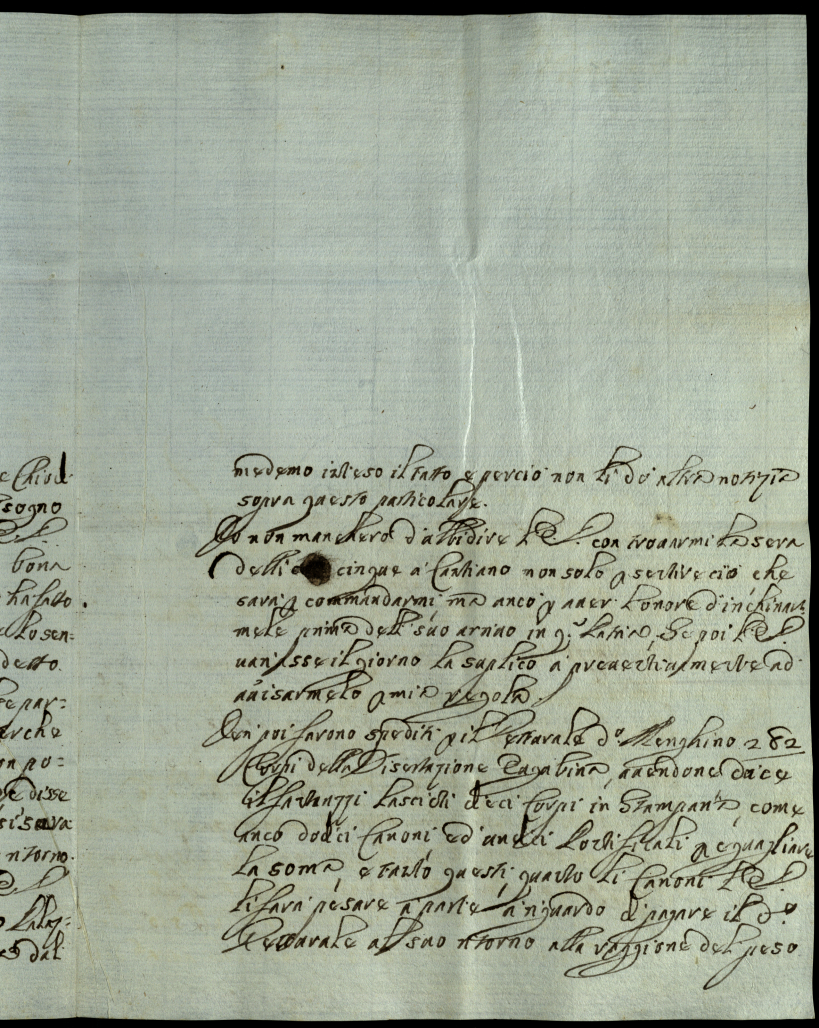 e Chiod
isogno
bona
ha fatto
e lo sen=
detto.
se par=
erche
on po=
se disse
si sava
ritorno.
dal
medemo inteso il fatto e perciò non li dò altra notizia
sopra questo particolare.
Io non mancherò d'ubbidire V.S. con trovarmi la sera
delli cinque a Cantiano non solo p sentire ciò che
sarà p commandarmi ma anco p auer l'onore d'inchinar=
mele prima del suo arriuo in q.ª Patria, Se poi V.S.
uariasse il giorno la suplico a preuentiuamente ad
auisarmelo p mia regola.
Ieri poi furono spediti p il Vetturale d.º Menghino 282
Corpi della Disertazione auendone
il lasciati dieci Corpi in Stamparia, come
anco dodici Canoni ed p eguagliare
la soma, e tanto questi quanto li Canoni V.S.
li farà pesare a parte a riguardo di pagare il d.º
Vetturale al suo ritorno alla raggione del peso